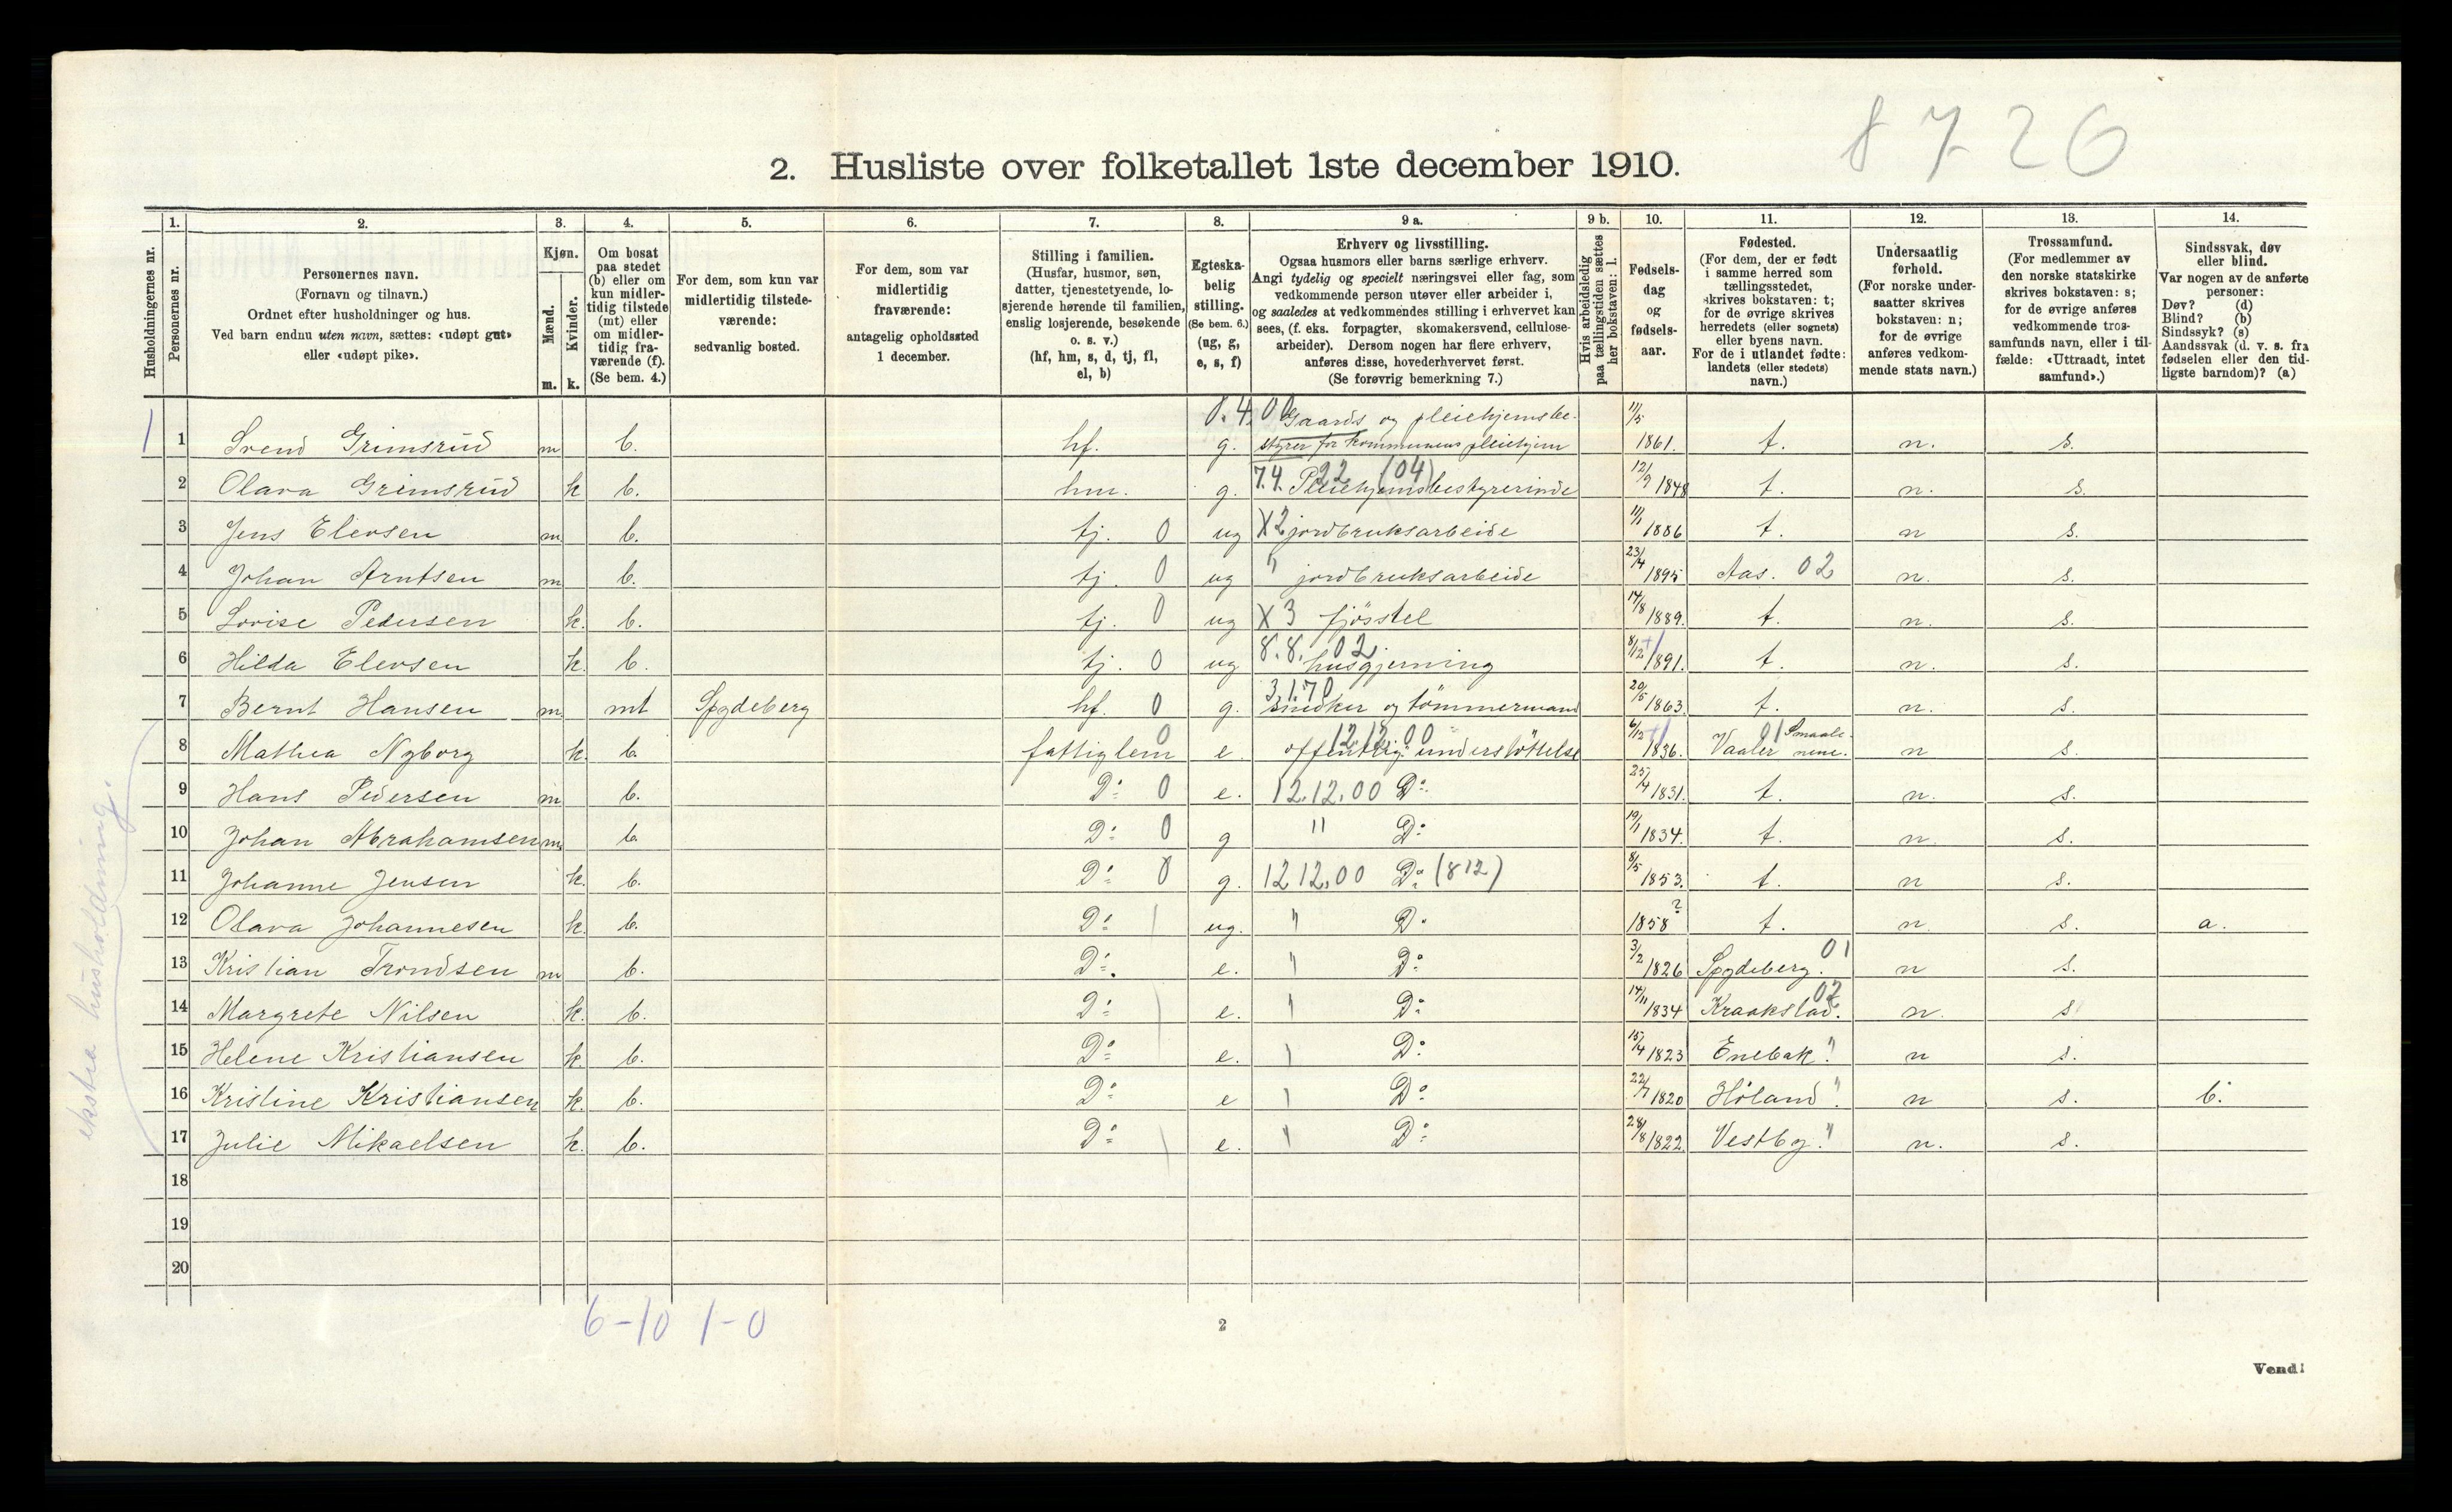 8726
2. Husliste over folketallet 1ste december 1910.
Husholdningernes nr.
1. Personernes nr.
2. Personernes navn. (Fornavn og tilnavn.) Ordnet efter husholdninger og hus. Ved barn endnu uten navn, sættes: «udøpt gut» eller «udøpt pike».
3. Kjøn. Mænd. m. Kvinder. k.
4. Om bosat paa stedet (b) eller om kun midlertidig tilstede (mt) eller om midlertidig fraværende (f). (Se bem. 4.)
5. For dem, som kun var midlertidig tilstedeværende: sedvanlig bosted.
6. For dem, som var midlertidig fraværende: antagelig opholdssted 1 december.
7. Stilling i familien. (Husfar, husmor, søn, datter, tjenestetyende, losjerende hørende til familien, enslig losjerende, besøkende o. s. v.) (hf, hm, s, d, tj, fl, el, b)
8. Egteskabelig stilling. (Se bem. 6.) (ug, g, e, s, f)
9 a. Erhverv og livsstilling. Ogsaa husmors eller barns særlige erhverv. Angi tydelig og specielt næringsvei eller fag, som vedkommende person utøver eller arbeider i, og saaledes at vedkommendes stilling i erhvervet kan sees, (f. eks. forpagter, skomakersvend, cellulosearbeider). Dersom nogen har flere erhverv, anføres disse, hovederhvervet først. (Se forøvrig bemerkning 7.)
9 b. Hvis arbeidsledig paa tællingstiden sættes her bokstaven: l.
10. Fødselsdag og fødselsaar.
11. Fødested. (For dem, der er født i samme herred som tællingsstedet, skrives bokstaven: t; for de øvrige skrives herredets (eller sognets) eller byens navn. For de i utlandet fødte: landets (eller stedets) navn.)
12. Undersaatlig forhold. (For norske undersaatter skrives bokstaven: n; for de øvrige anføres vedkommende stats navn.)
13. Trossamfund. (For medlemmer av den norske statskirke skrives bokstaven: s; for de øvrige anføres vedkommende trossamfunds navn, eller i tilfælde: «Uttraadt, intet samfund».)
14. Sindssvak, døv eller blind. Var nogen av de anførte personer: Døv? (d) Blind? (b) Sindssyk? (s) Aandssvak (d. v. s. fra fødselen eller den tidligste barndom)? (a)
1 1 Svend Grimsrud m b. hf. g. 8.4.00 Gaards og pleiehjemsbestyrer for kommunens pleiehjem 11/5 1861. t. n. s.
2 Olava Grimsrud k b. hm. g. 7.4. 22 (04) Pleiehjemsbestyrerinde 12/9 1848 t. n. s.
3 Jens Elevsen m b. tj. 0 ug X2 jordbruksarbeide 11/1 1886 t. n s.
4 Johan Arntsen m b. tj. 0 ug " jordbruksarbeide 23/4 1895 Aas. 02 n. s.
5 Lovise Pedersen k. b. tj. 0 ug X 3 fjösstel 14/8 1889. t. n. s.
6 Hilda Elevsen k. b. tj. 0 ug 8.8. 02 husgjerning 8/12 1891. t. n. s.
7 Bernt Hansen m mt Spydeberg hf. 0 g. 3.1.70 snedker og tömmermand 20/5 1863. t. n. s.
8 Mathea Nyborg k. b. fattiglem 0 e. 12.12.00 offentlig understöttelse 6/12 1836. Vaaler Smaalenene. 01 n s.
9 Hans Pedersen m b. Do 0 e. 12.12.00 Do 25/4 1831. t. n. s.
10 Johan Abrahamsen m. b. Do 0 g " Do 19/1 1834. t. n. s.
11 Johanne Jensen k. b. Do 0 g. 12 12.00 Do (812) 8/5 1853. t. n s.
12 Olava Johannesen k. b. Do ug. " Do 1858 ? t. n. s. a.
13 Kristian Trondsen m b. Do e. " Do 3/2 1826 Spydeberg. 01 n s.
14 Margrete Nilsen k. b. Do e. " Do 14/11 1834 Kraakstad. 02 n. s
15 Helene Kristiansen k. b. Do e. " Do 15/4 1823 Enebak. " n s.
16 Kristine Kristiansen k. b. Do e " Do 22/7 1820 Höland. " n s. b.
17 Julie Mikaelsen k. b. Do e. " Do 28/8 1822. Vestby. " n. s.
18
19
20
ekstra husholdning.
6-10 1-0
2
Vend!